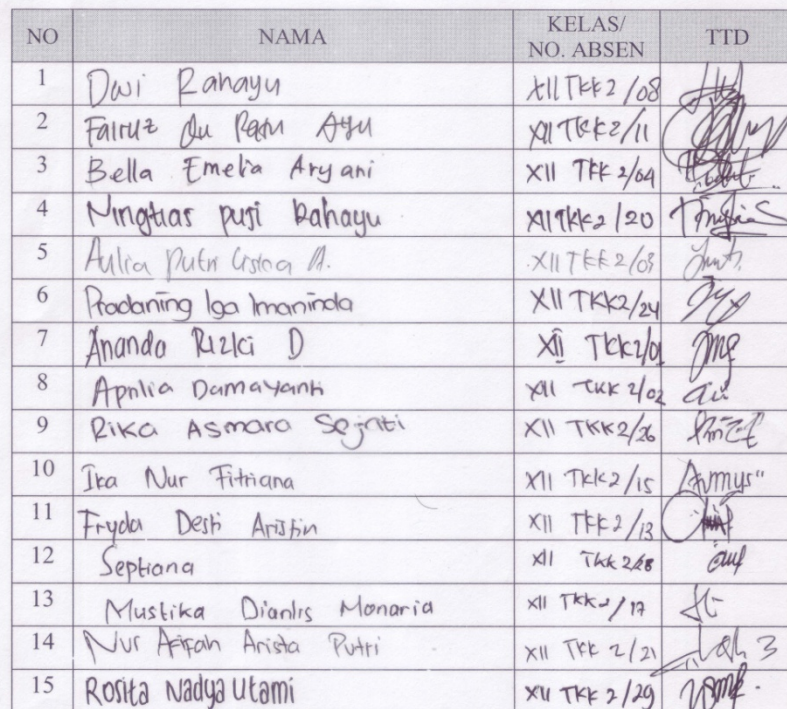 NO NAMA KELAS/ NO. ABSEN TTD
1 Dwi Rahayu XII TKK 2/08
2 Fairuz Qu Ratu Ayu XII TKK 2/11
3 Bella Emelia Aryani XII TKK 2/04
4 Ningtias puji Rahayu XII TKK 2/20
5 Aulia Putri A. XII TKK 2/03
6 Pradaning Iga Imaninda XII TKK2/24
7 Ananda Rizki D XII TKK2/01
8 Aprilia Damayanti XII TKK 2/02
9 Rika Asmara Sejati XII TKK2/26
10 Ika Nur Fitriana XII TKK2/15
11 Fryda Desti Aristin XII TKK 2/13
12 Septiana XII TKK 2/28
13 Mustika Dianlis Monaria XII TKK 2/17
14 Nur Afifah Arista Putri XII TKK 2/21
15 Rosita Nadya Utami XII TKK 2/29